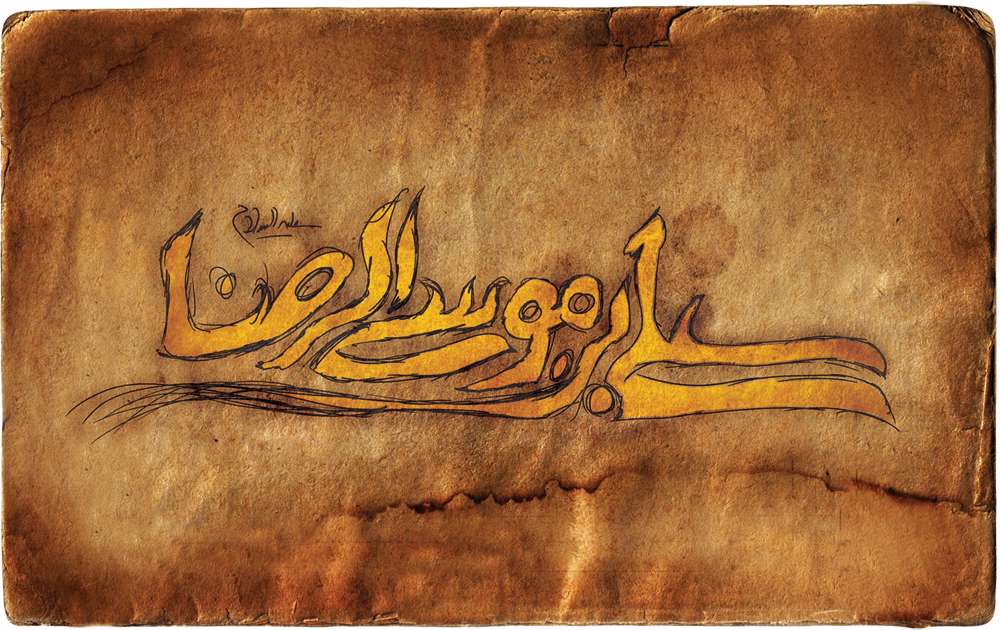 علی بن موسی الرضا
علیه السلام